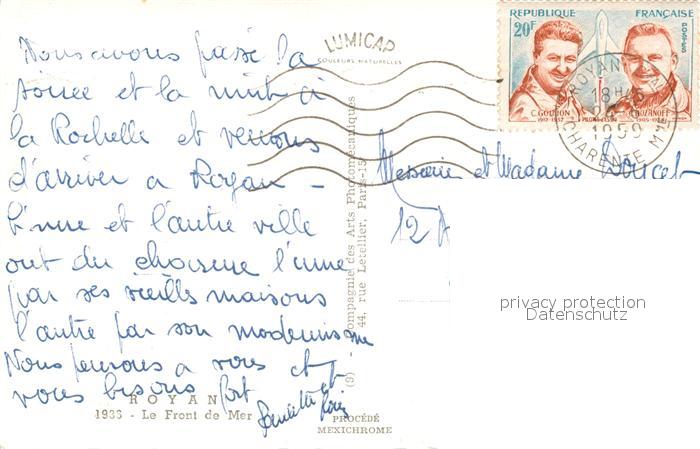 LUMICAP
COULEURS NATURELLES
REPUBLIQUE FRANÇAISE
20F
POSTES
C. GOUJON
ROYAN
18H
1959
CHARENTE MME
Nous avons passé la
soirée et la nuit à
la Rochelle et venons
d'arriver a Royan -
L'une et l'autre ville
ont du charme l'une
par ses vieilles maisons
l'autre par son modernisme
Nous pensons a vous et
vous bisons fort
et
Messieur et Madame
12
Compagnie des Arts Photomécaniques
44, rue Letellier, Paris-15
(9)
ROYAN
1936 - Le Front de Mer
PROCÉDÉ
MEXICHROME
privacy protection
Datenschutz